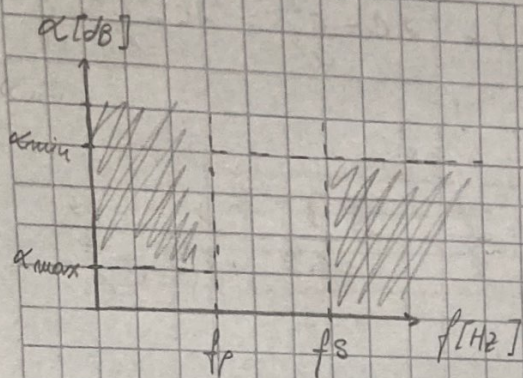 α[dB]
αmin
αmax
fp
fs
f[Hz]